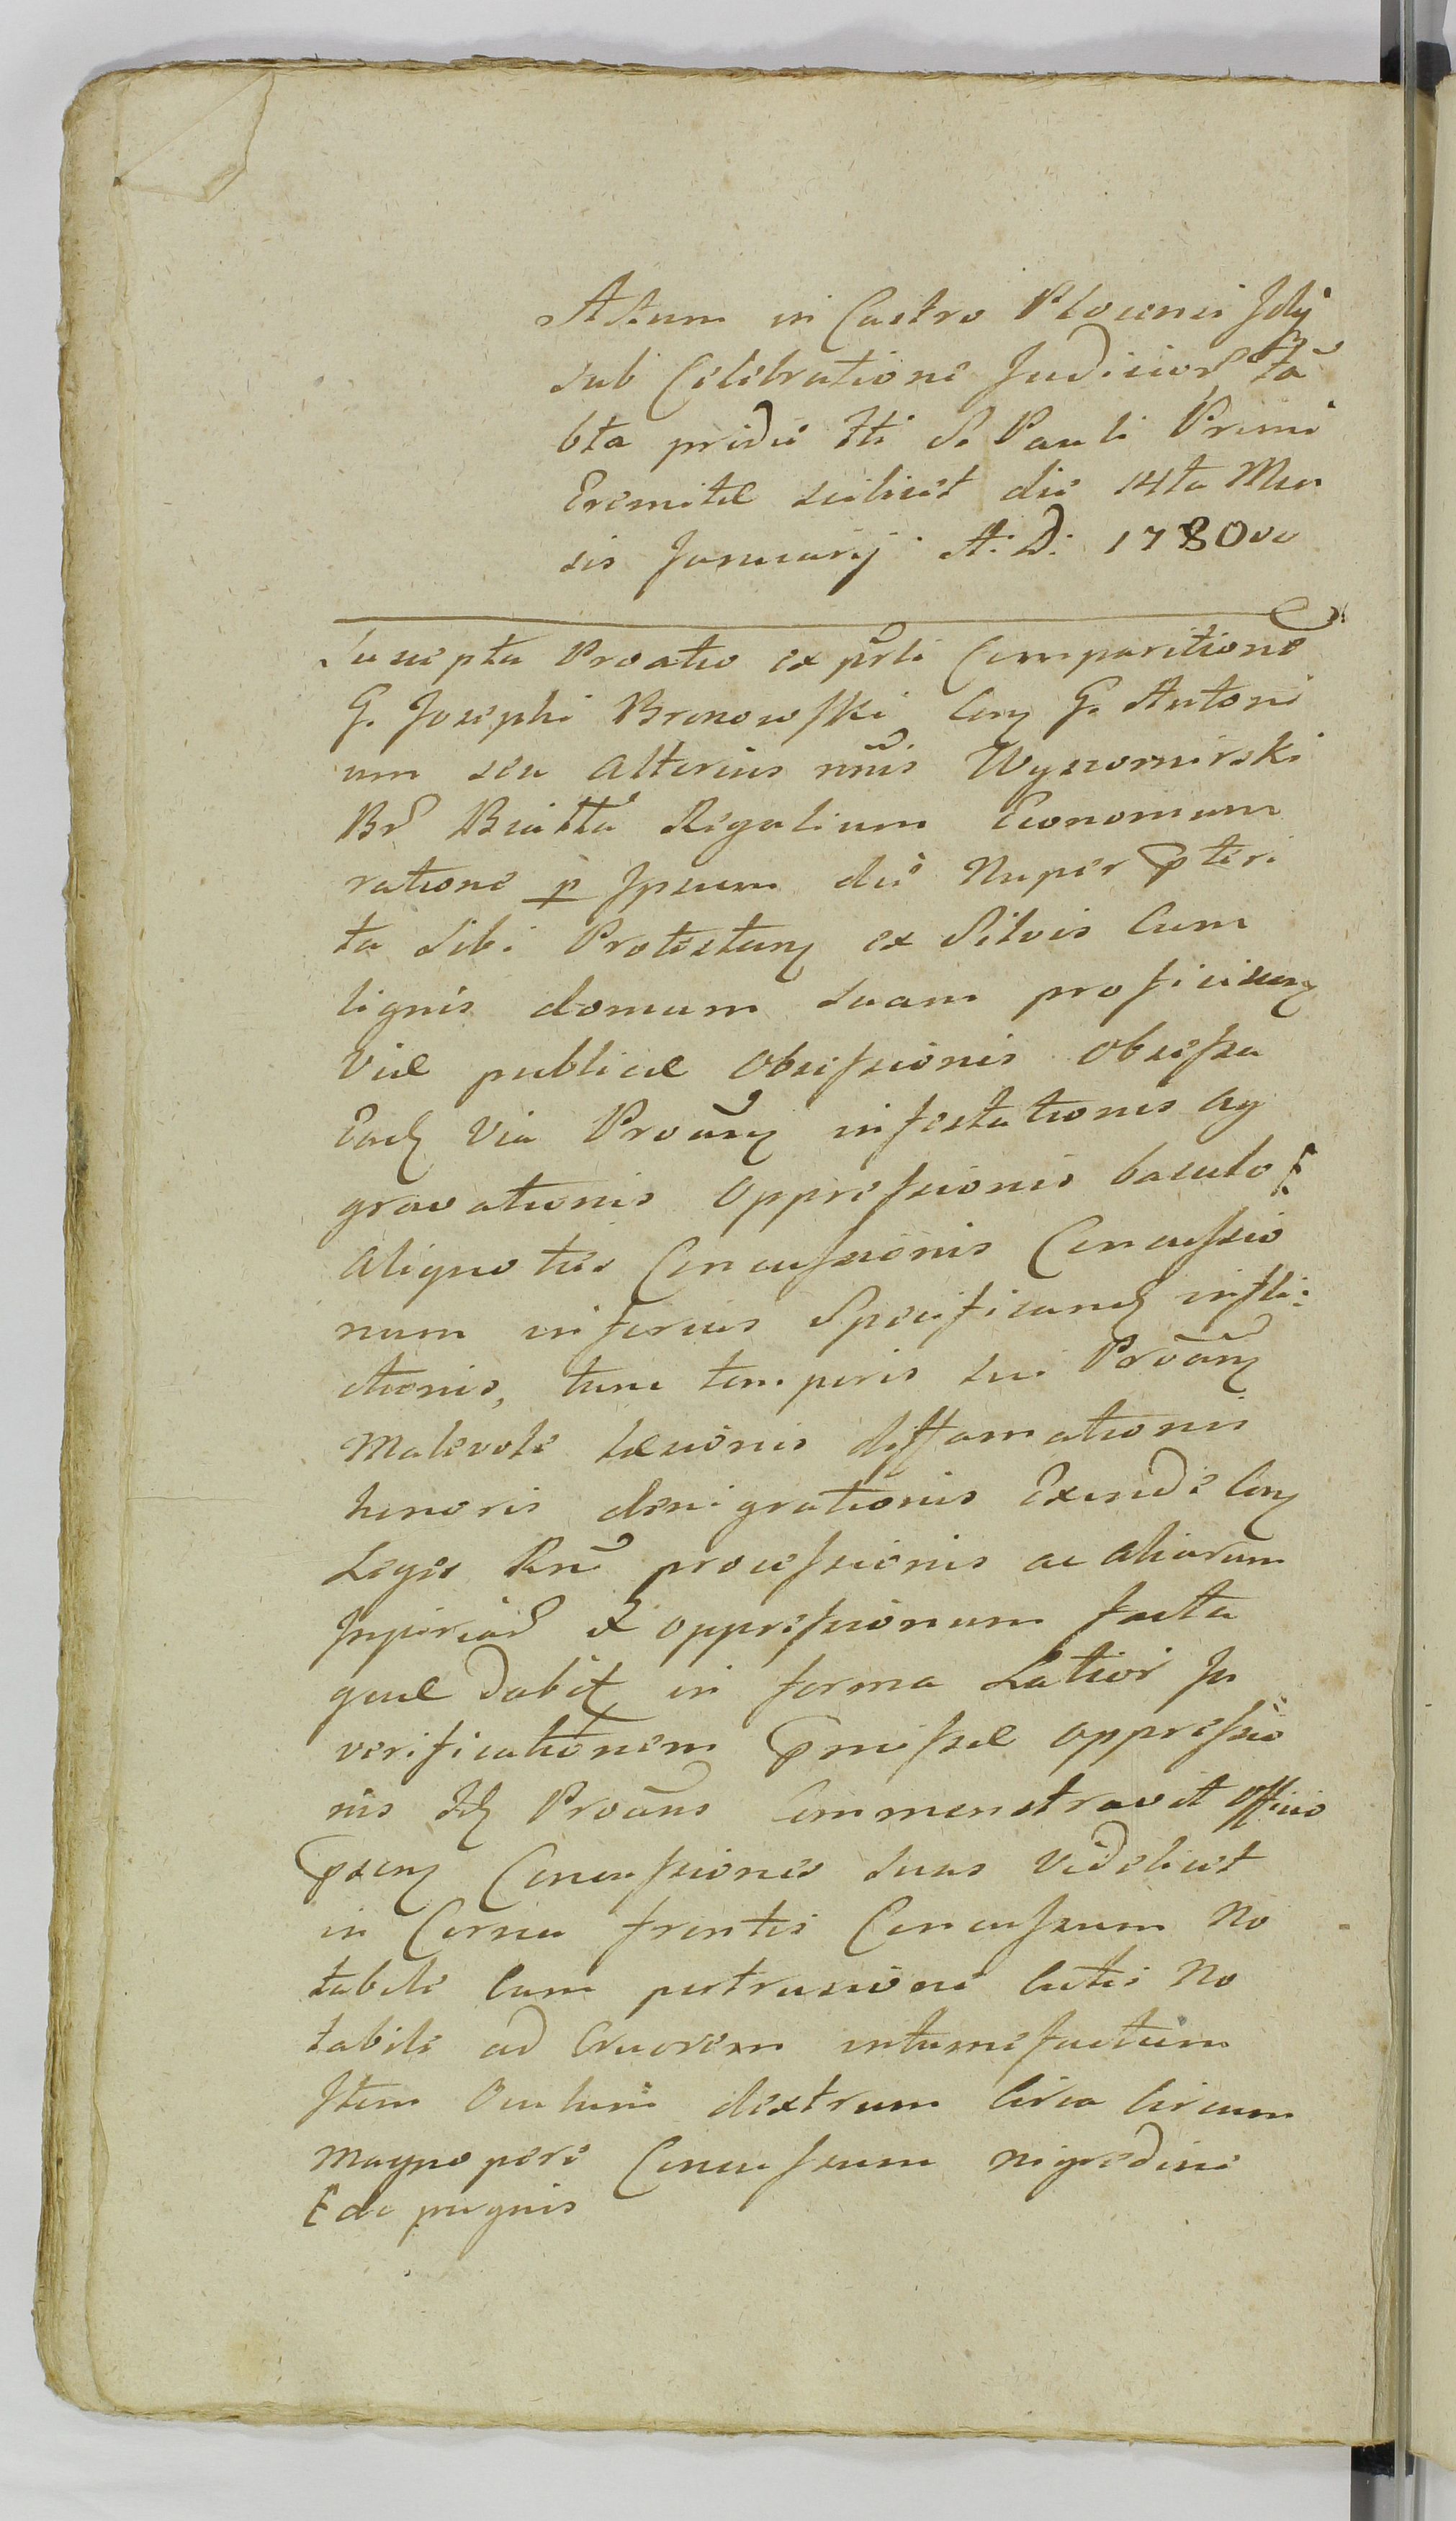 Actum in Castro Plocensi fely
sub Celebratione Judiciorꝝ ta
bta pridie tti S. Pauli Primi
Eremitæ scilicet die 14ta Men
sis Januarij A: D: 1780vo
Suscepta Proatio ex prli Comparitione
G. Josephi Bronowski Con G. Antoni
um seu alterius nnis Wyszomirski
Br Regalium Economum
ratione p Ipsum die Nuper pteri
ta Sibi Protestanz ex Silvis Cum
lignis domum suam proficiscenz
Viæ publicæ Obsessionis Obsessa
Eadz Via Proanz infestationis ag
gravationis oppressionis baculo
aliquoties Concussionis Concussio
num inferius Specificand infli:
ctionis, tunc temporis sui Proanz
Malevole læsionis diffamationis
honoris denigrationis Exinde Con
Leges Rni processionis ac aliarum
Injuriarꝝ et oppressionum facta
quæ dabit in forma Latiori In
verificationem pmissæ oppressio
nis Idz Proans Commonstravit Officio
psenz Concussiones suas videlicet
in Cornu frontis Concussum No
tabile Cum pertrusione Cutis No
tabili ad Cruorem intumefactum
Item Oculum dextrum Circa Circum
Magnopere Concussum nigredine
de pugnis